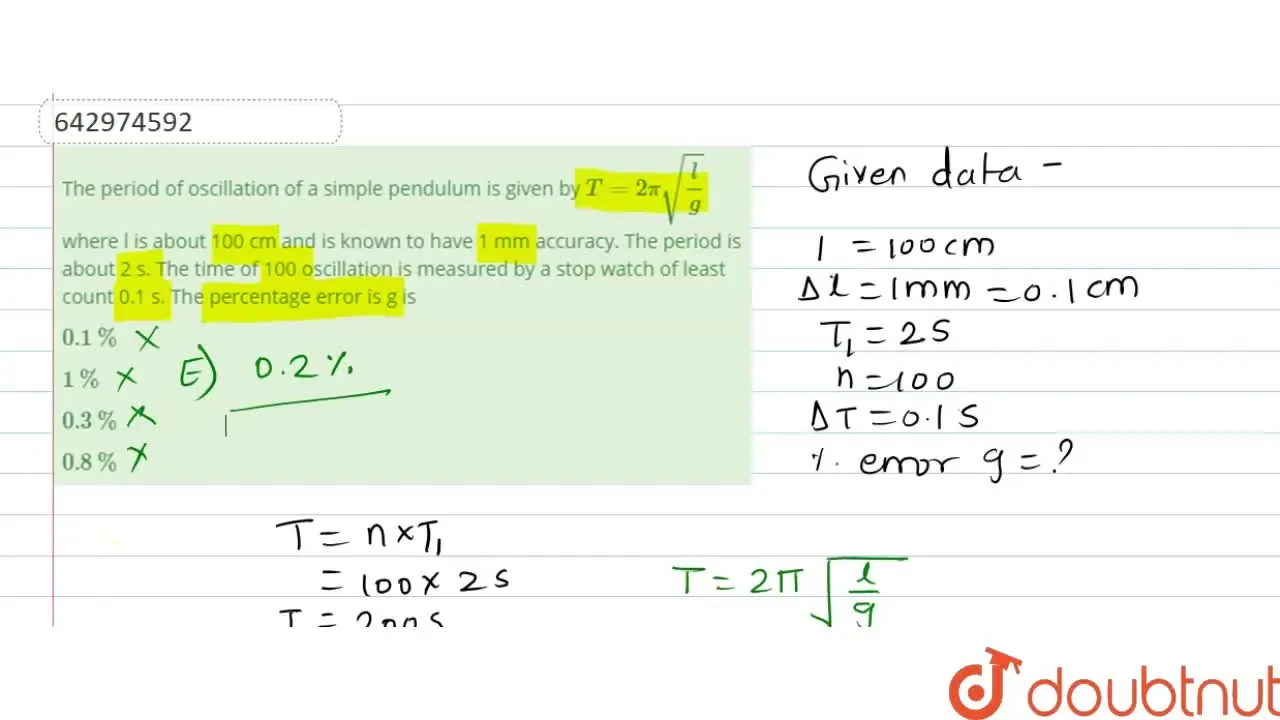 642974592
The period of oscillation of a simple pendulum is given by T = 2π√(l/g)
where l is about 100 cm and is known to have 1 mm accuracy. The period is
about 2 s. The time of 100 oscillation is measured by a stop watch of least
count 0.1 s. The percentage error is g is
0.1 % ×
1 % ×
0.3 % ×
0.8 % ×
E) 0.2 %.
Given data -
l = 100 cm
Δl = 1mm = 0.1 cm
T₁ = 2 S
n = 100
ΔT = 0.1 S
%. error g = ?
T = n × T₁
= 100 × 2 s
T = 200 s
T = 2π√(l/g)
doubtnut